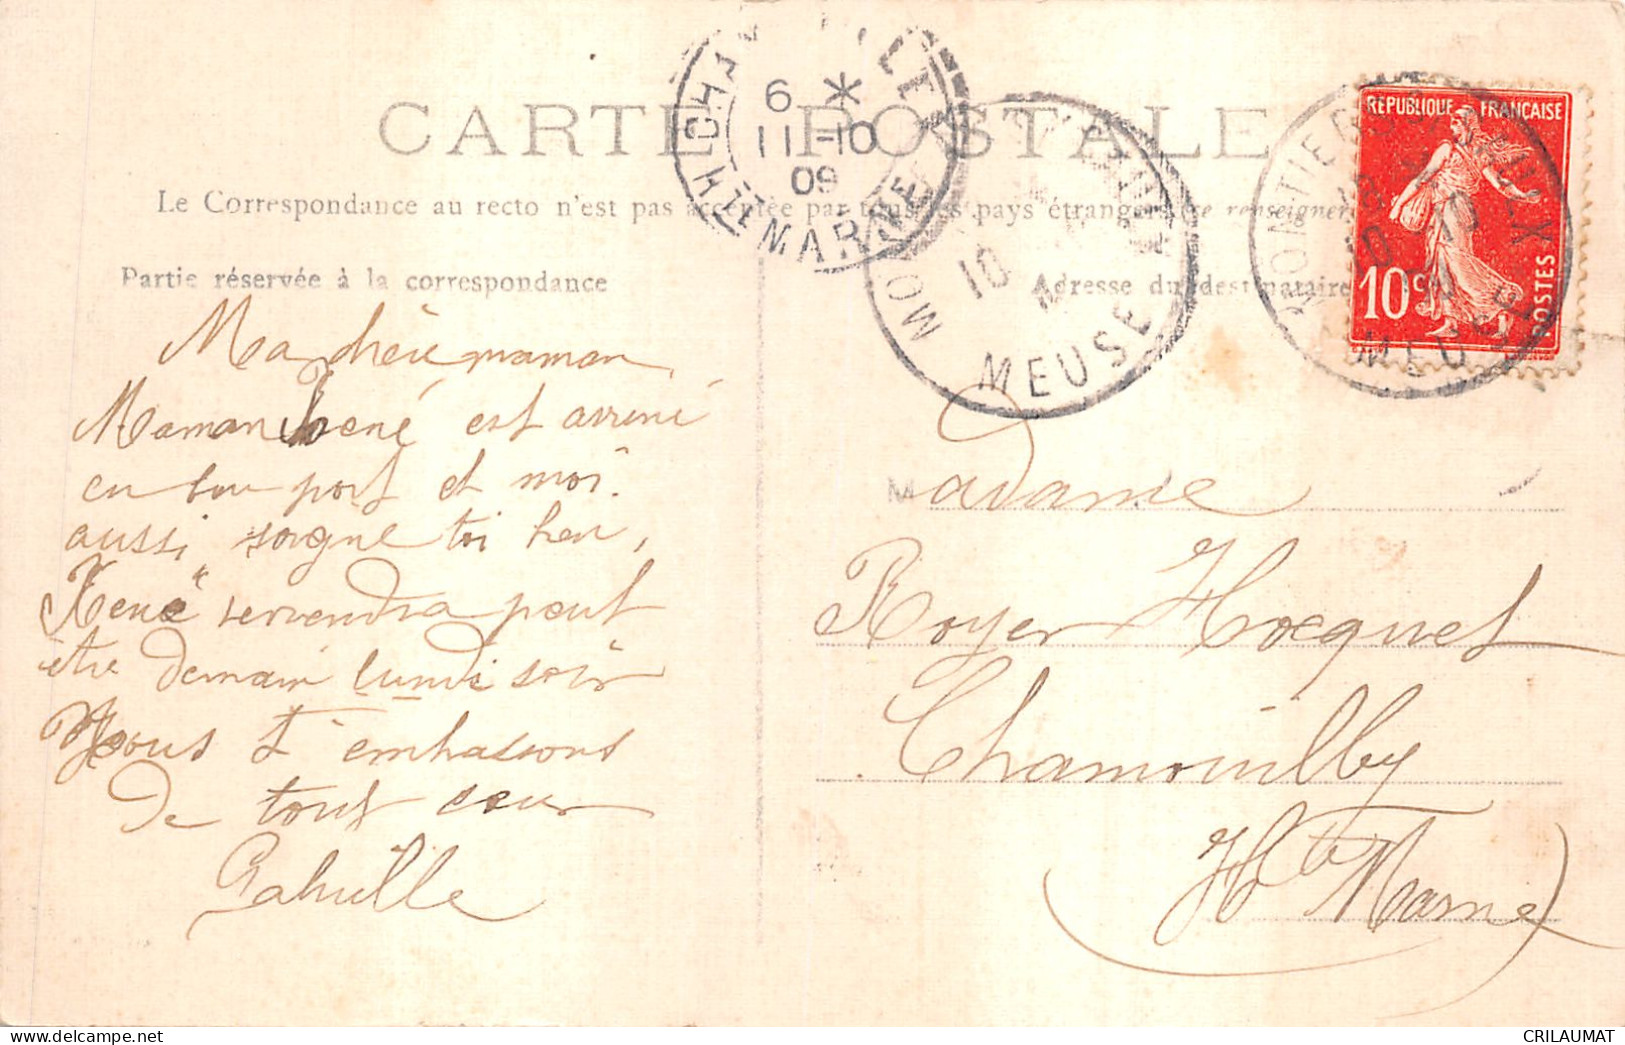 CARTE POSTALE
Le Correspondance au recto n'est pas acceptée par tous les pays étrangers (Se renseigner
Partie réservée à la correspondance
Adresse du destinataire
RÉPUBLIQUE FRANÇAISE
10c
POSTES
6 *
11-10
09
HTE MARNE
MEUSE
10
MONTIERS
10
MEUSE
Ma chère maman
Maman René est arrivé
en bon port et moi
aussi, soigne toi bien,
René reviendra peut
être demain lundi soir
Nous t'embrassons
de tout cœur
Madame
Royer Hocquet
Chamouilley
Hte Marne
CRILAUMAT